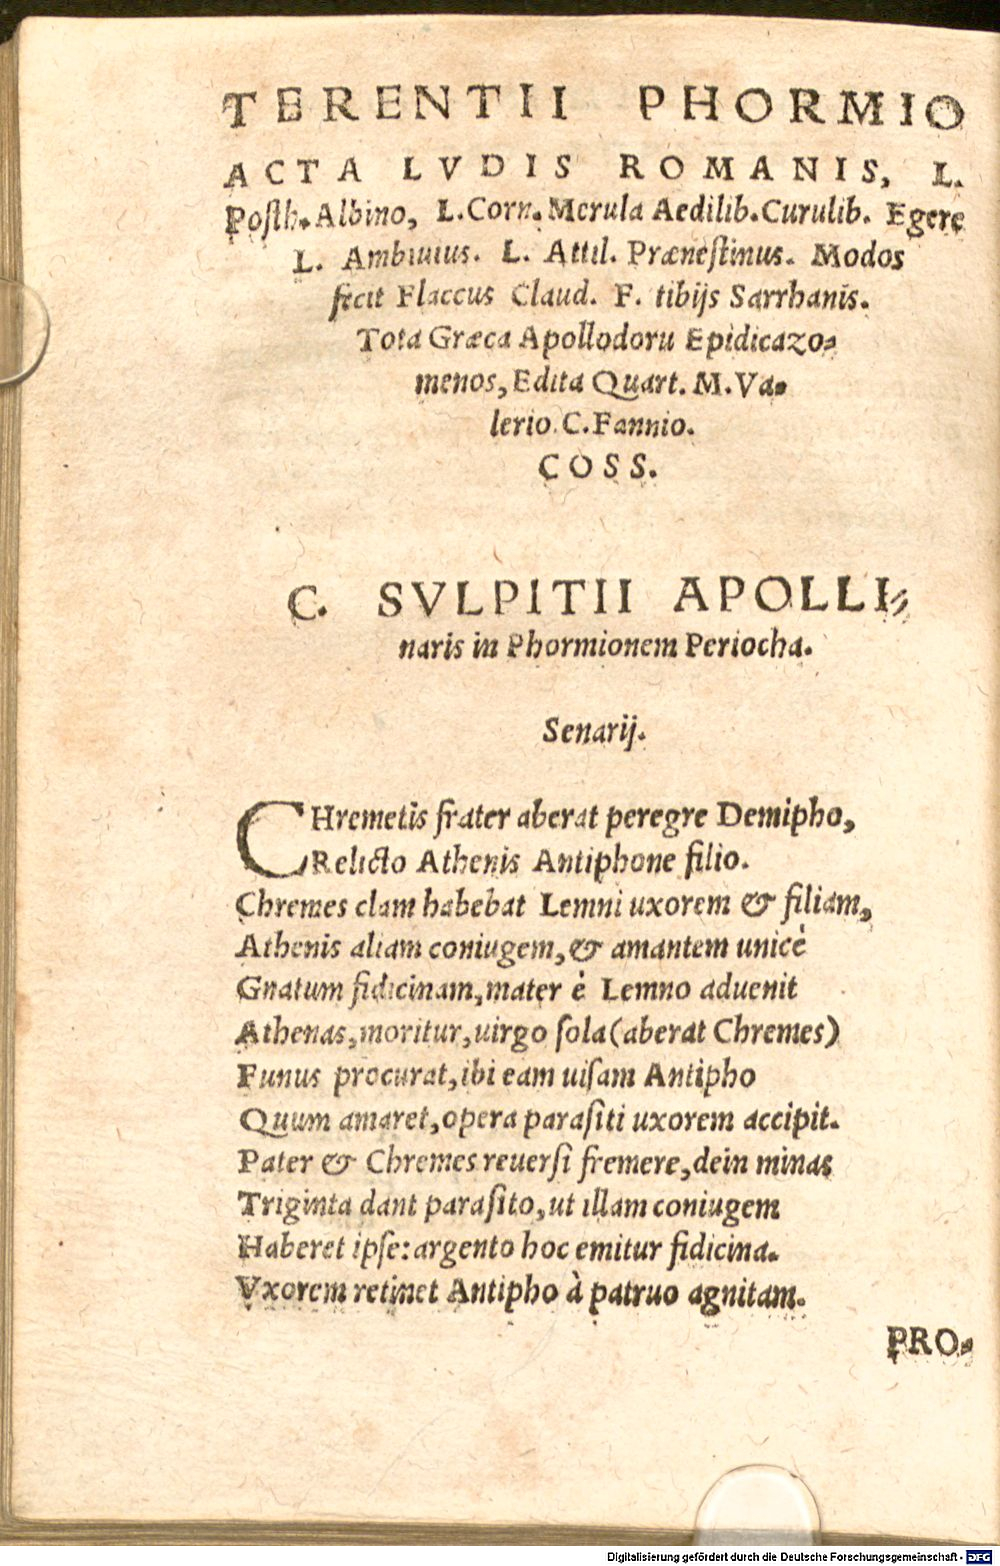 TERENTII PHORMIO
ACTA LVDIS ROMANIS, L.
Posth. Albino, L. Corn. Merula Aedilib. Curulib. Egere
L. Ambiuius. L. Attil. Prænestinus. Modos
fecit Flaccus Claud. F. tibijs Sarrhanis.
Tota Græca Apollodoru Epidicazo-
menos, Edita Quart. M. Va-
lerio C. Fannio.
COSS.
C. SVLPITII APOLLI-
naris in Phormionem Periocha.
Senarij.
CHremetis frater aberat peregre Demipho,
Relicto Athenis Antiphone filio.
Chremes clam habebat Lemni uxorem & filiam,
Athenis aliam coniugem, & amantem unicè
Gnatum fidicinam, mater è Lemno aduenit
Athenas, moritur, uirgo sola (aberat Chremes)
Funus procurat, ibi eam uisam Antipho
Quum amaret, opera parasiti uxorem accipit.
Pater & Chremes reuersi fremere, dein minas
Triginta dant parasito, ut illam coniugem
Haberet ipse: argento hoc emitur fidicina.
Vxorem retinet Antipho à patruo agnitam.
PRO-
Digitalisierung gefördert durch die Deutsche Forschungsgemeinschaft - DFG